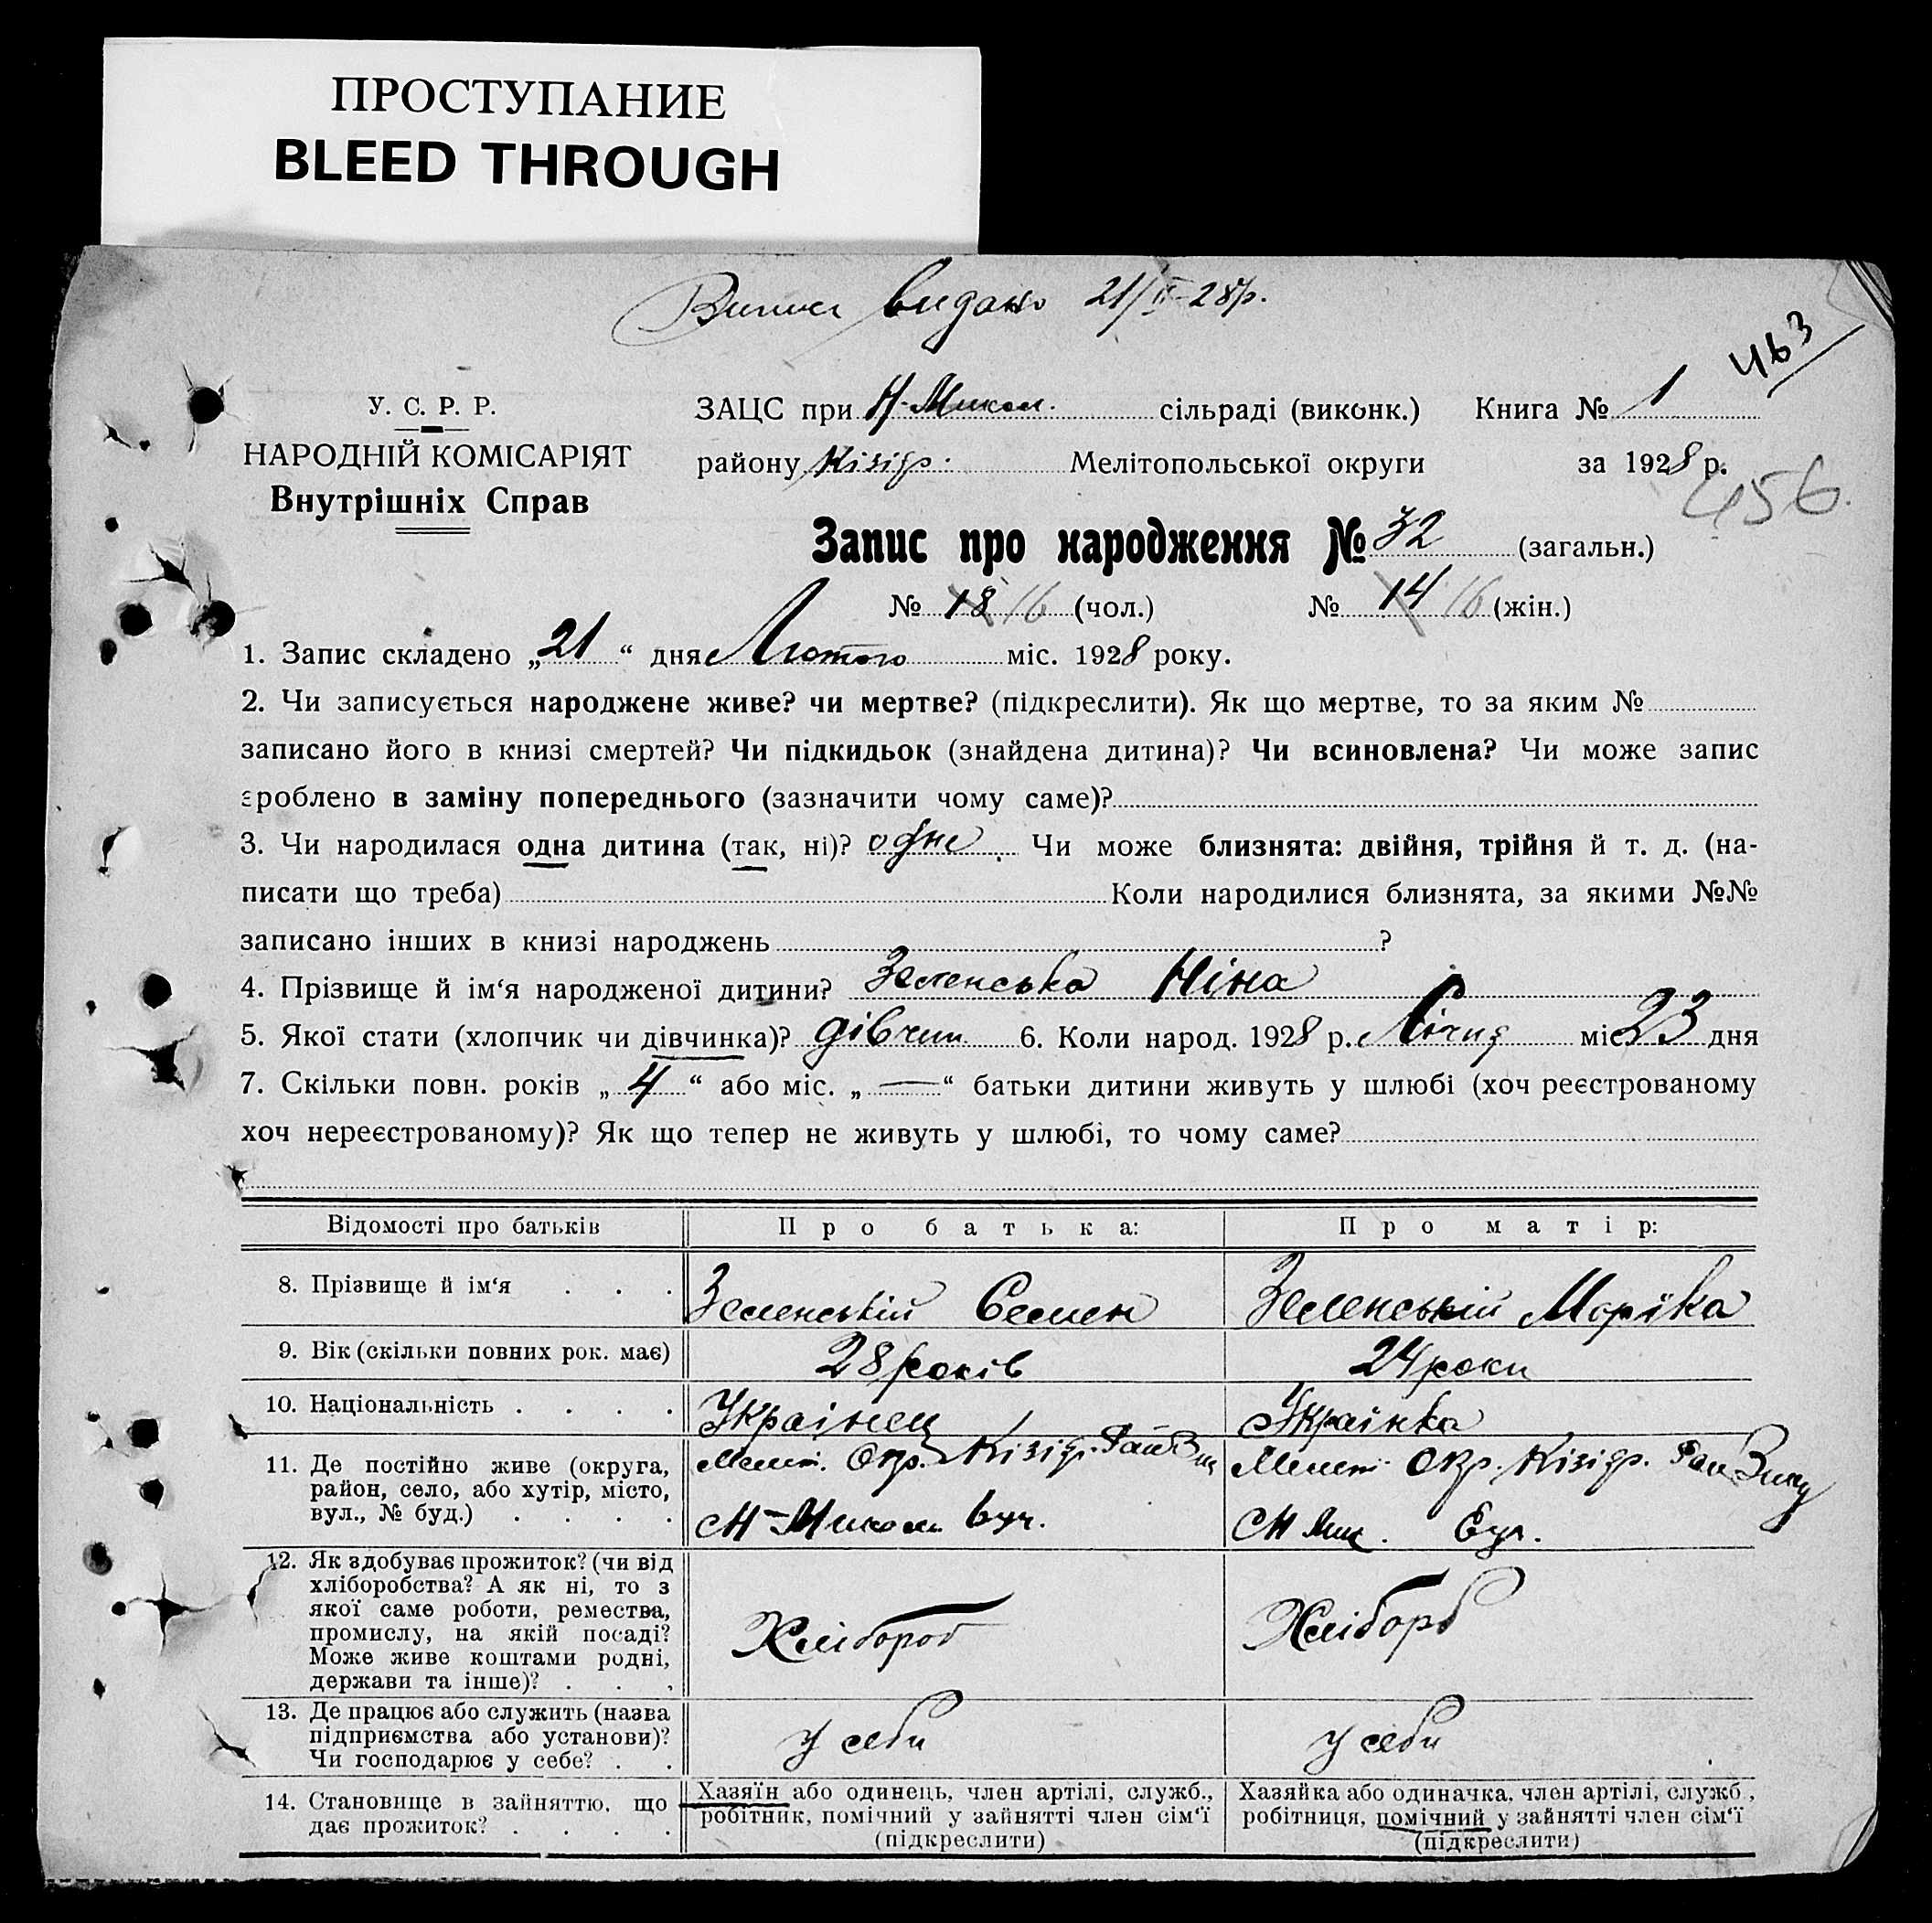 ПРОСТУПАНИЕ
BLEED THROUGH
видано 21/II-28р.
463
У. С. Р. Р.
НАРОДНІЙ КОМІСАРІЯТ
Внутрішніх Справ
ЗАЦС при Н-Микол. сільраді (виконк.) Книга № 1
району Кізідр. Мелітопольської округи за 1928 р.
456.
Запис про народження № 32 (загальн.)
№ 18 16 (чол.) № 14 16 (жін.)
1. Запис складено „21“ дня Лютого міс. 1928 року.
2. Чи записується народжене живе? чи мертве? (підкреслити). Як що мертве, то за яким №
записано його в книзі смертей? Чи підкидьок (знайдена дитина)? Чи всиновлена? Чи може запис
зроблено в заміну попереднього (зазначити чому саме)?
3. Чи народилася одна дитина (так, ні)? одне. Чи може близнята: двійня, трійня й т. д. (на-
писати що треба) Коли народилися близнята, за якими №№
записано інших в книзі народжень ?
4. Прізвище й ім‘я народженої дитини? Зеленська Ніна
5. Якої стати (хлопчик чи дівчинка)? дівчин 6. Коли народ. 1928 р. Січня міс 23 дня
7. Скільки повн. років „4“ або міс. „—“ батьки дитини живуть у шлюбі (хоч реєстрованому
хоч нереєстрованому)? Як що тепер не живуть у шлюбі, то чому саме?
Відомості про батьків Про батька: Про матір:
8. Прізвище й ім‘я . . . Зеленській Семен Зеленській Маріка
9. Вік (скільки повних рок. має) 28 років 24 роки
10. Національність . . . . Українец Українка
11. Де постійно живе (округа, Меліт. Окр. Кізідр. Мелит. Окр. Кізідр.
район, село, або хутір, місто,
вул., № буд.) . . . . Н-Микол. вул. Н Мик. вул.
12. Як здобуває прожиток? (чи від
хліборобства? А як ні, то з
якої саме роботи, ремества,
промислу, на якій посаді? Хлібороб Хліборб
Може живе коштами родні,
держави та інше)? . . .
13. Де працює або служить (назва
підприємства або установи)? у себи у себи
Чи господарює у себе? . .
14. Становище в зайняттю, що Хазяїн або одинець, член артілі, служб., Хазяйка або одиначка, член артілі, служб.,
дає прожиток? . . . . робітник, помічний у зайнятті член сім‘ї робітниця, помічний у зайнятті член сім‘ї
(підкреслити) (підкреслити)